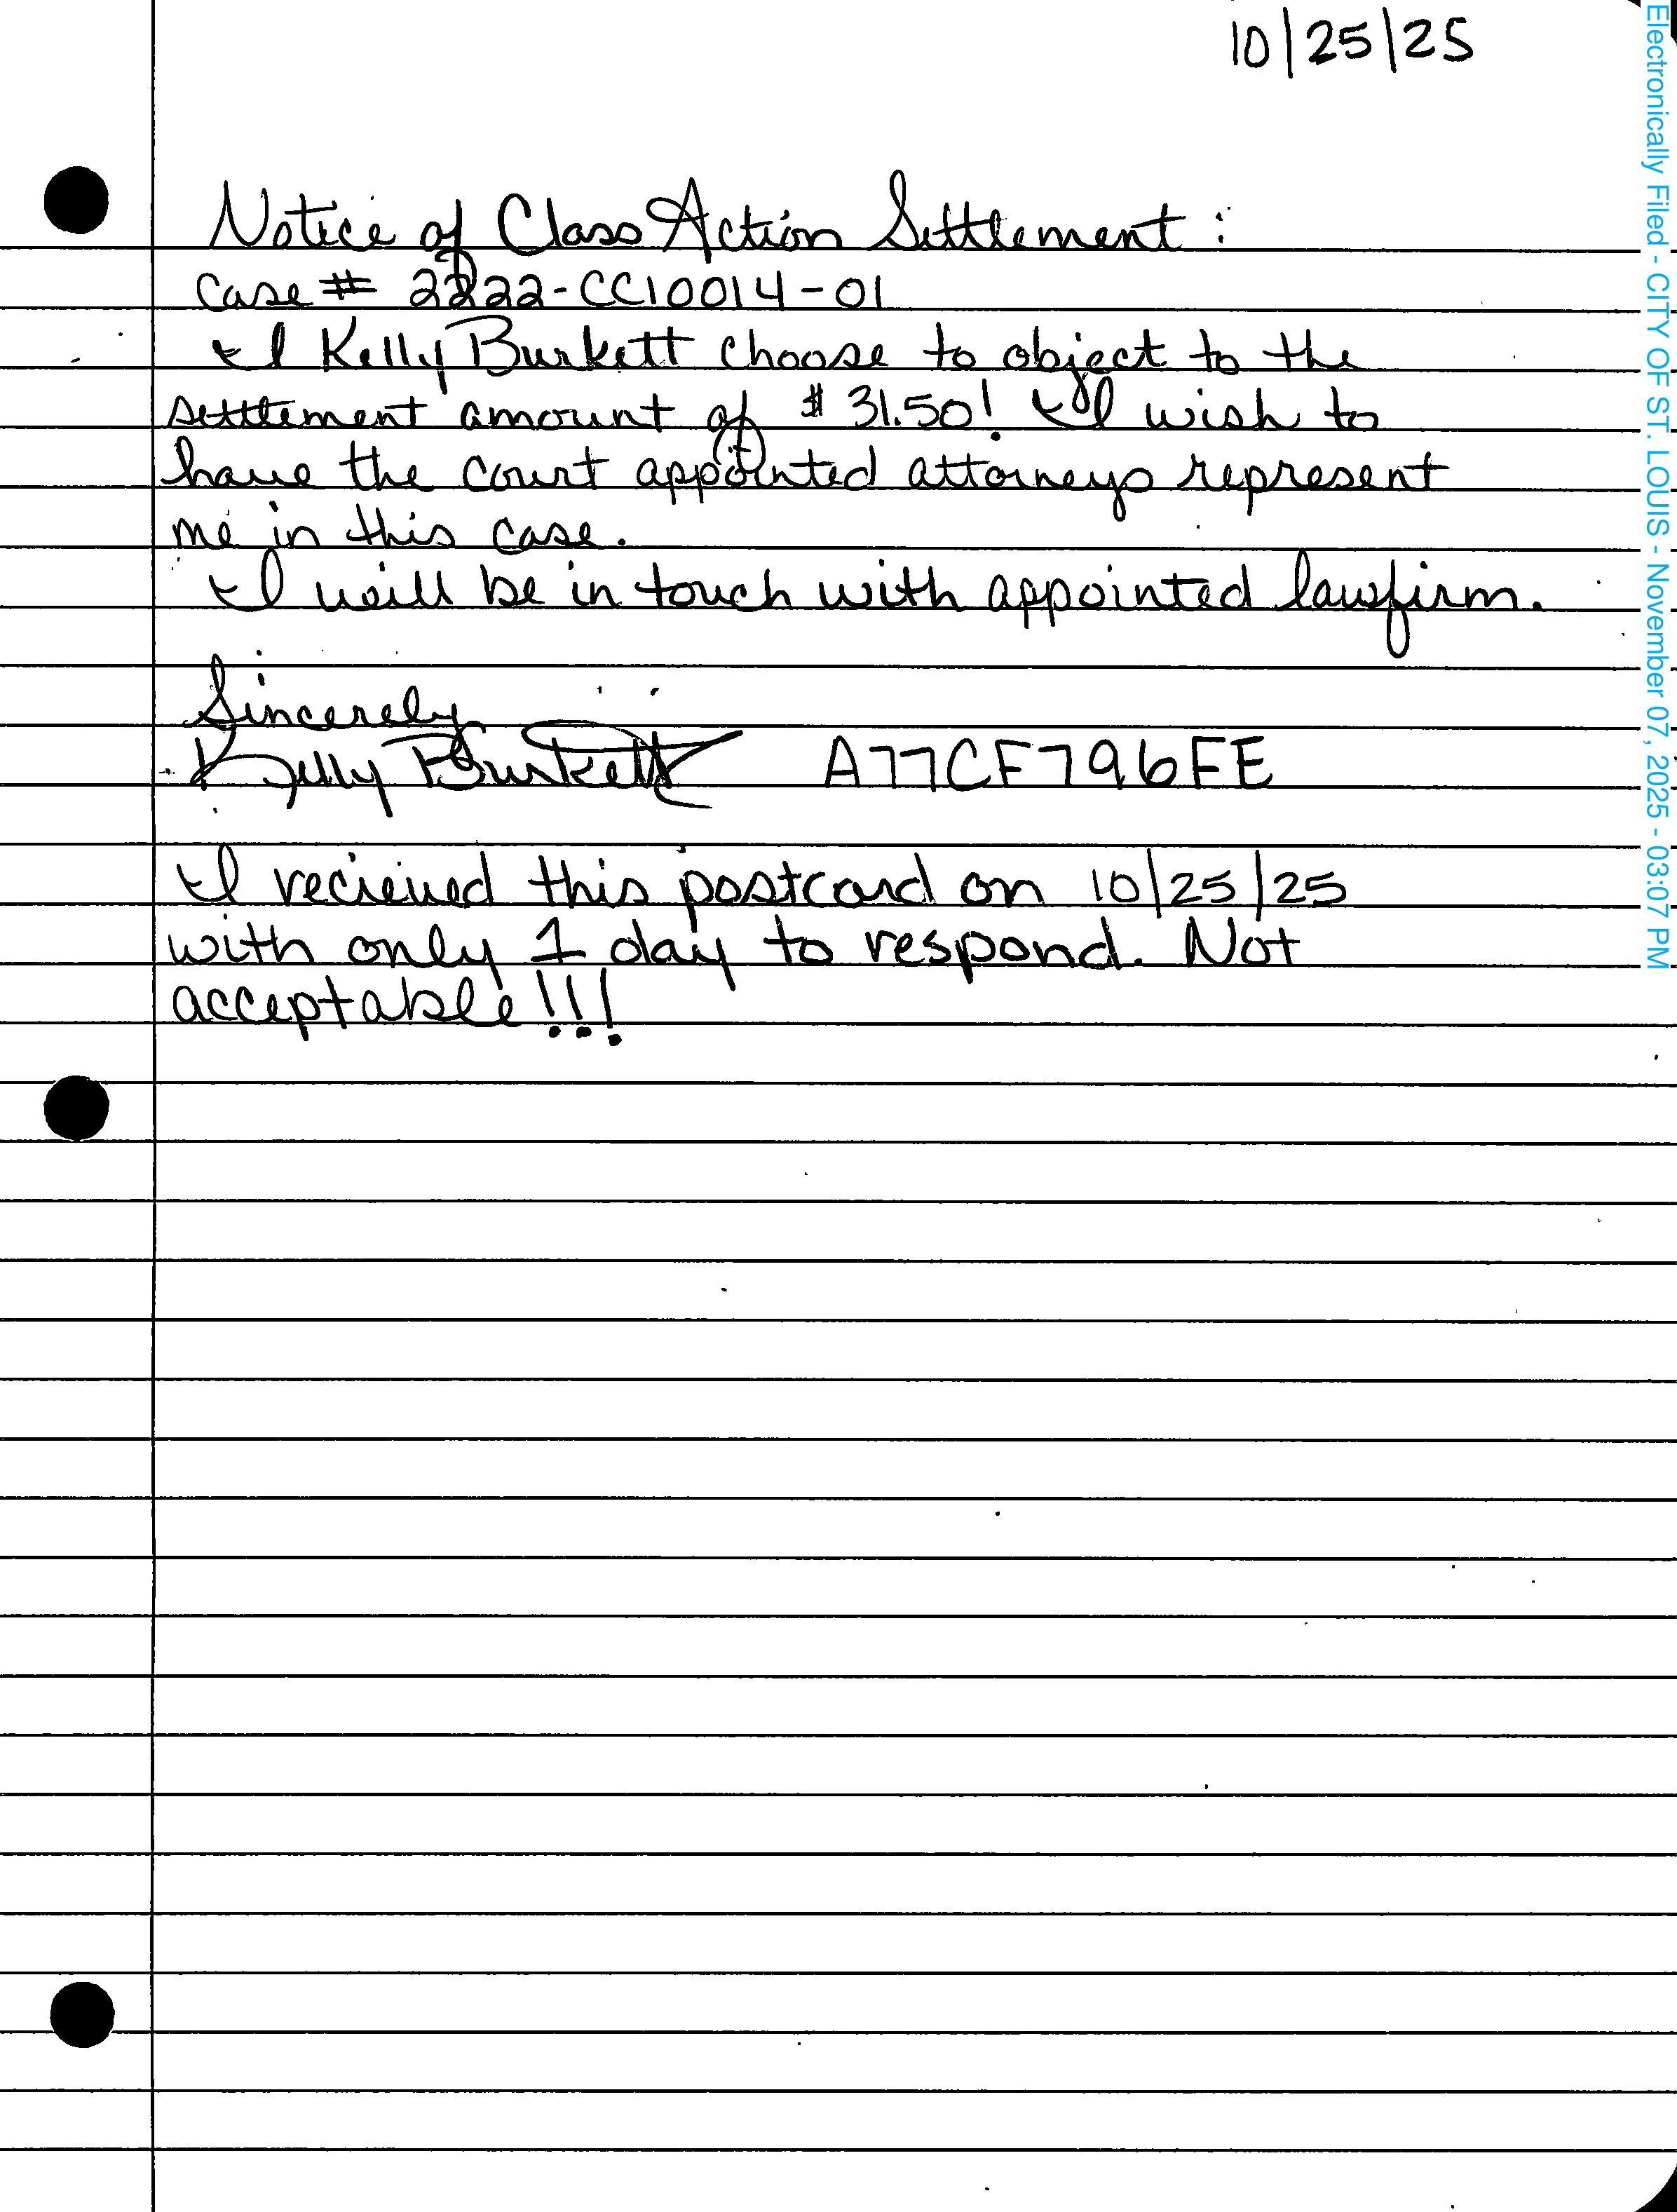 10/25/25
Notice of Class Action Settlement:
Case # 2222-CC10014-01
I Kelly Burkett choose to object to the
settlement amount of $31.50! I wish to
have the court appointed attorneys represent
me in this case.
I will be in touch with appointed lawfirm.
Sincerely
Kelly Burkett A77CF796FE
I recieved this postcard on 10/25/25
with only 1 day to respond. Not
acceptable!!!
Electronically Filed - CITY OF ST. LOUIS - November 07, 2025 - 03:07 PM